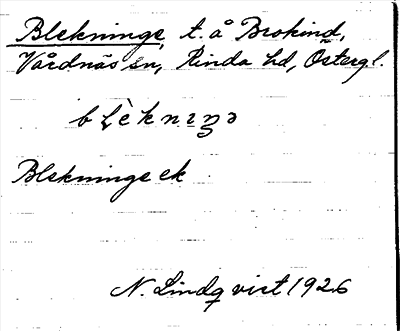 Blekninge, t. å Brokind,
Vårdnäs sn, Kinda hd, Östergl.
Blekninge ek
N. Lindqvist 1926